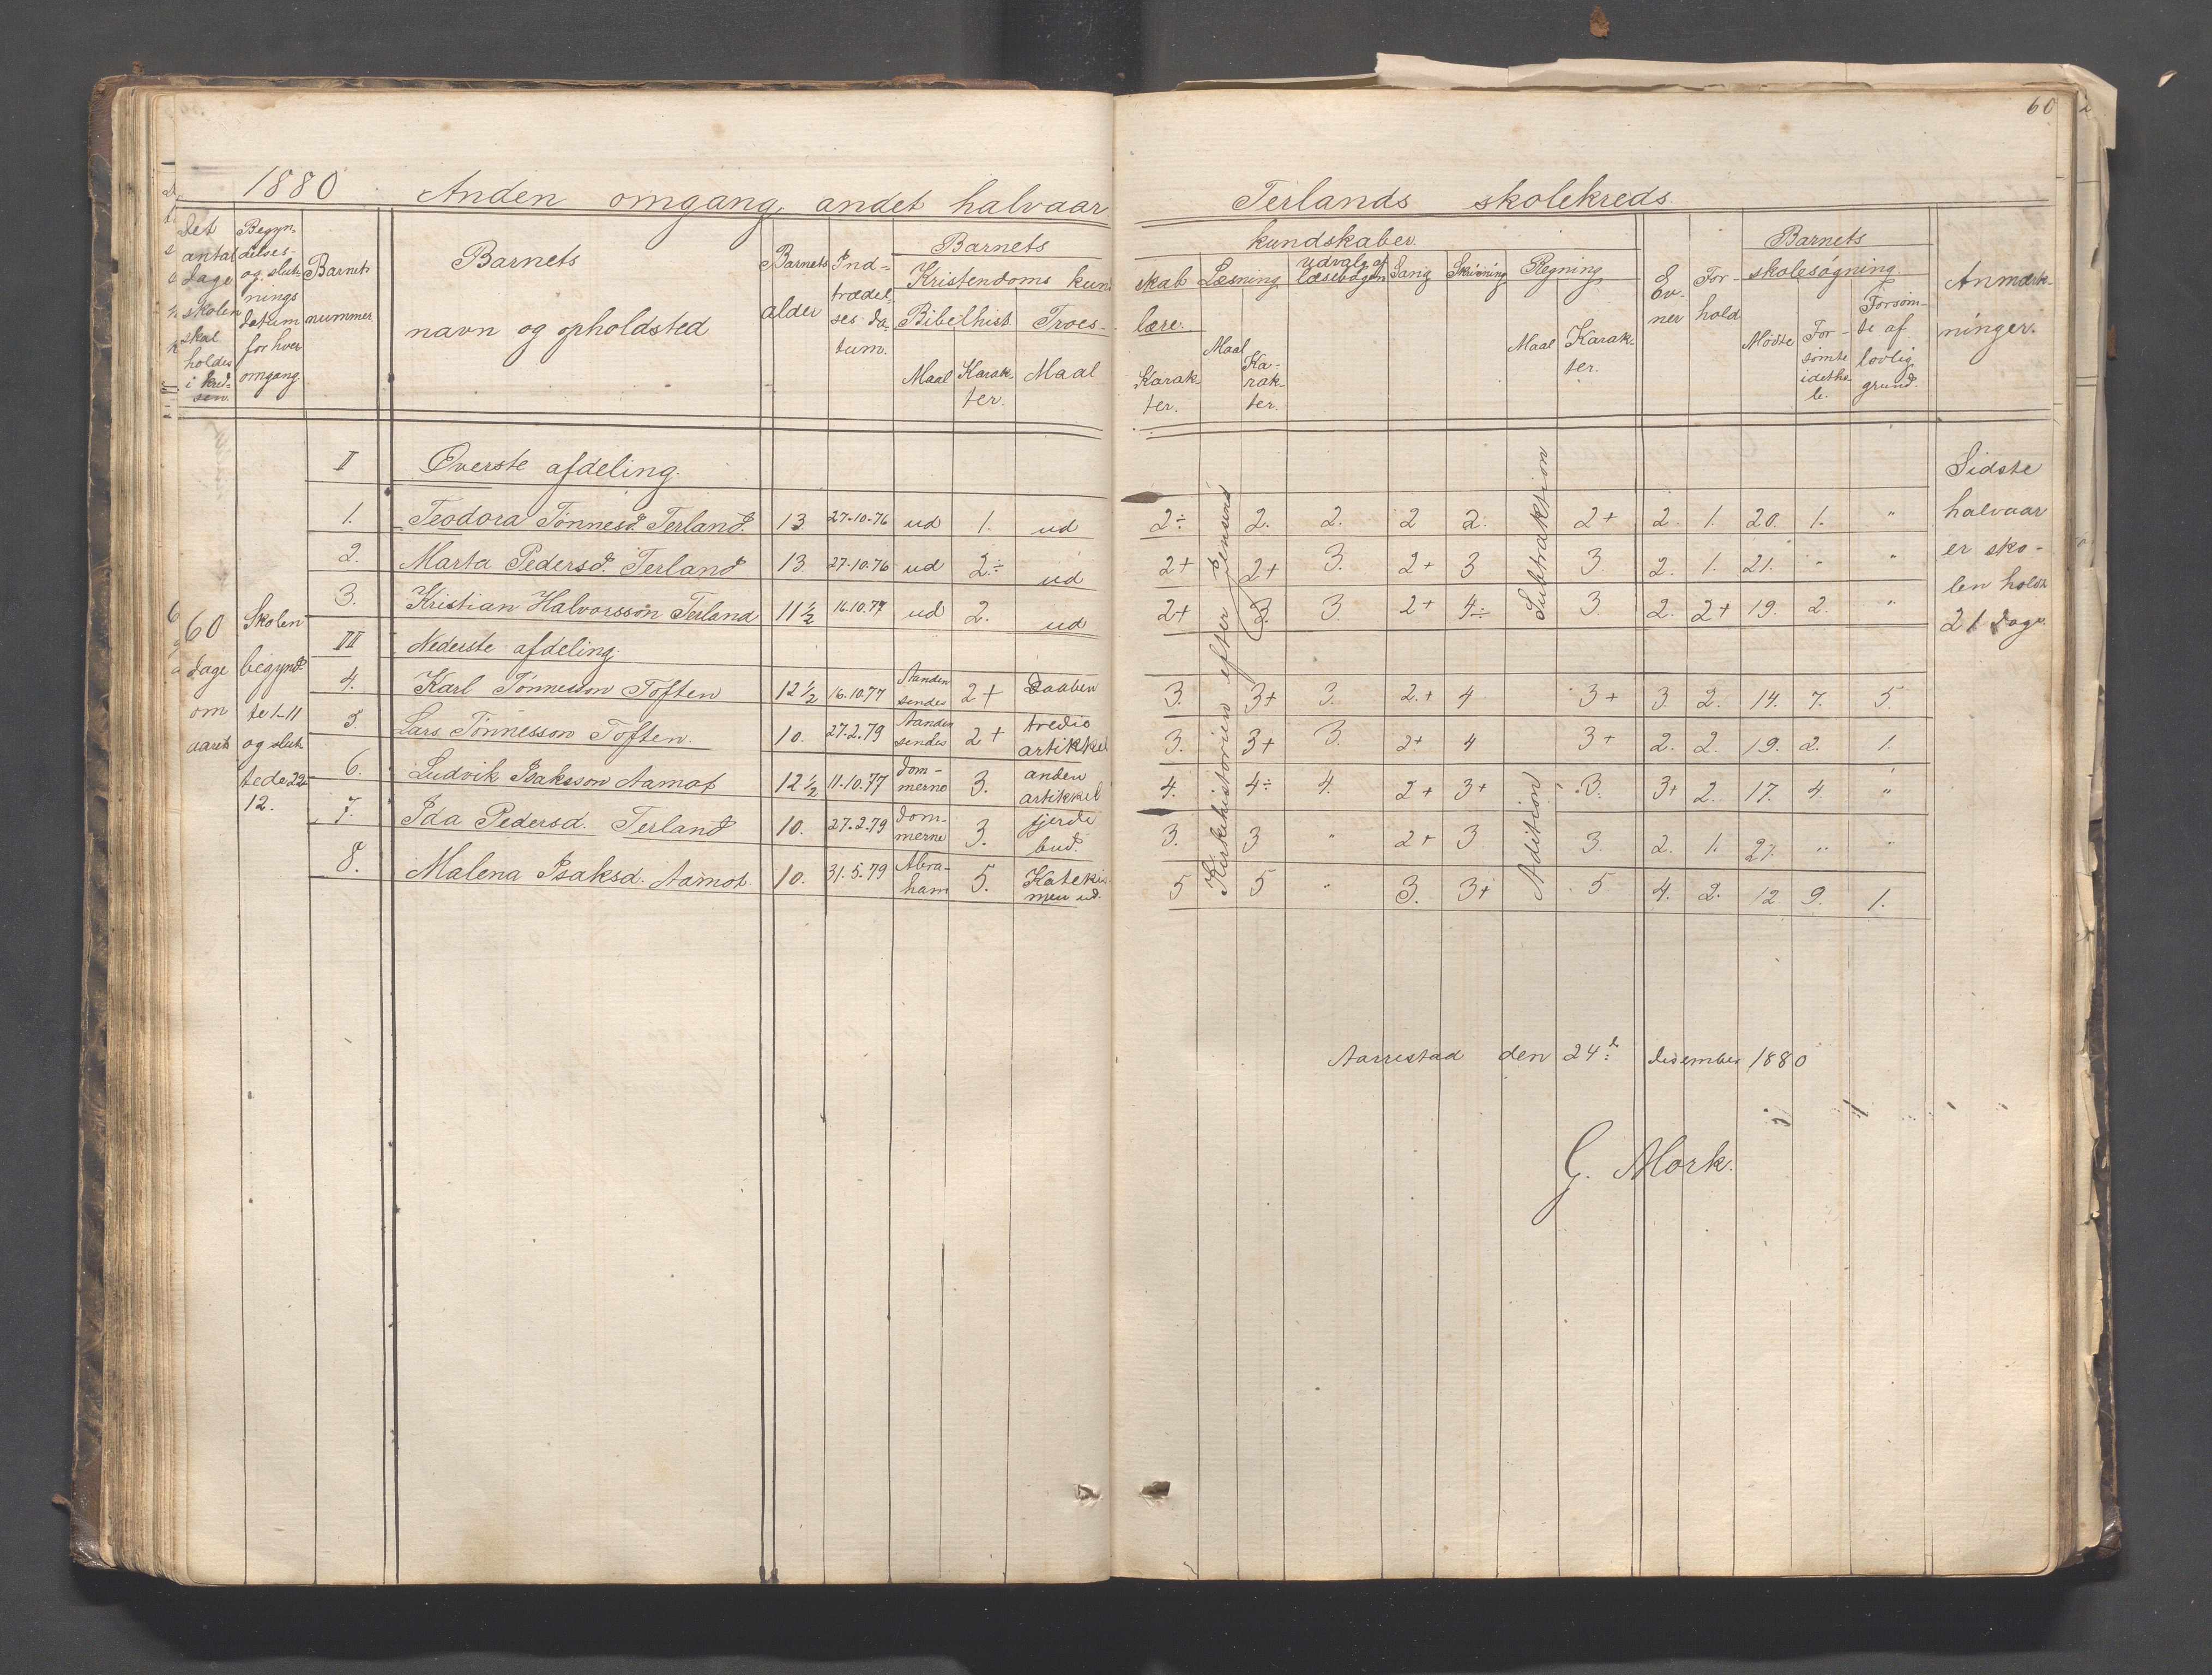 60
1880 Anden omgang, andet halvaar. Terlands skolekreds.
Det antal dage skolen skal holdes i kredsen.
Begyndelses- og slutnings datum for hver omgang.
Barnets nummer
Barnets navn og opholdsted
Barnets alder
Indtrædelses datum.
Barnets kundskaber.
Kristendoms kundskab
Bibelhist. Maal Karakter.
Troeslære. Maal Karakter.
Læsning Maal Karakter.
Udvalg af læsebogen
Sang
Skrivning
Regning Maal Karakter.
Evner
Forhold
Barnets skolesøgning.
Mødte
Forsømte idethele.
Forsømte af lovlig grund.
Anmærkninger.
II Øverste afdeling.
1. Teodora Tønnesd. Terland. 13 27-10-76 ud 1. ud 2÷ 2. 2. 2 2. 2+ 2. 1. 20. 1. "
2. Marta Pedersd. Terland 13 27-10-76 ud 2÷ ud 2+ 2+ 3. 2+ 3 3 2. 1. 21. " "
3. Kristian Halvorsson Terland 11½ 16.10.77 ud 2. ud 2+ 3. 3. 2+ 4÷ 3. 2. 2+ 19. 2. "
Nederste afdeling.
4. Karl Tønnesson Toften 12½ 16.10.77 Aanden sendes 2+ Daaben 3. 3+ 3. 2.+ 4 3+ 3. 2. 14. 7. 5.
5. Lars Tønnesson Toften. 10. 27.2.79 Aanden sendes 2+ tredie artikkel 3. 3+ 3. 2+ 4 3+ 2. 2. 19. 2. 1.
6. Ludvik Isaksson Aamot 12½ 11.10.77 dommerne 3. anden artikkel 4. 4÷ 4. 2+ 3+ 3. 3+ 2. 17. 4. "
7. Ida Pedersd. Terland 10. 27.2.79 dommerne 3. fjerde bud. 3. 3 " 2+ 3 3. 2. 1. 21. " "
8. Malena Isaksd. Aamot. 10. 31.5.79 Abraham 5. Katekismen ud. 5 5 " 3. 3+ 5 4. 2. 12 9. 1.
60 dage om aaret
Skolen begyndte 1-11 og sluttede 22-12.
Kirkehistorien efter Jensens
Subtraktion
Adition
Sidste
halvaar
er sko-
len holdt
21 dage.
Aarrestad den 24de desember 1880
G. Mork.